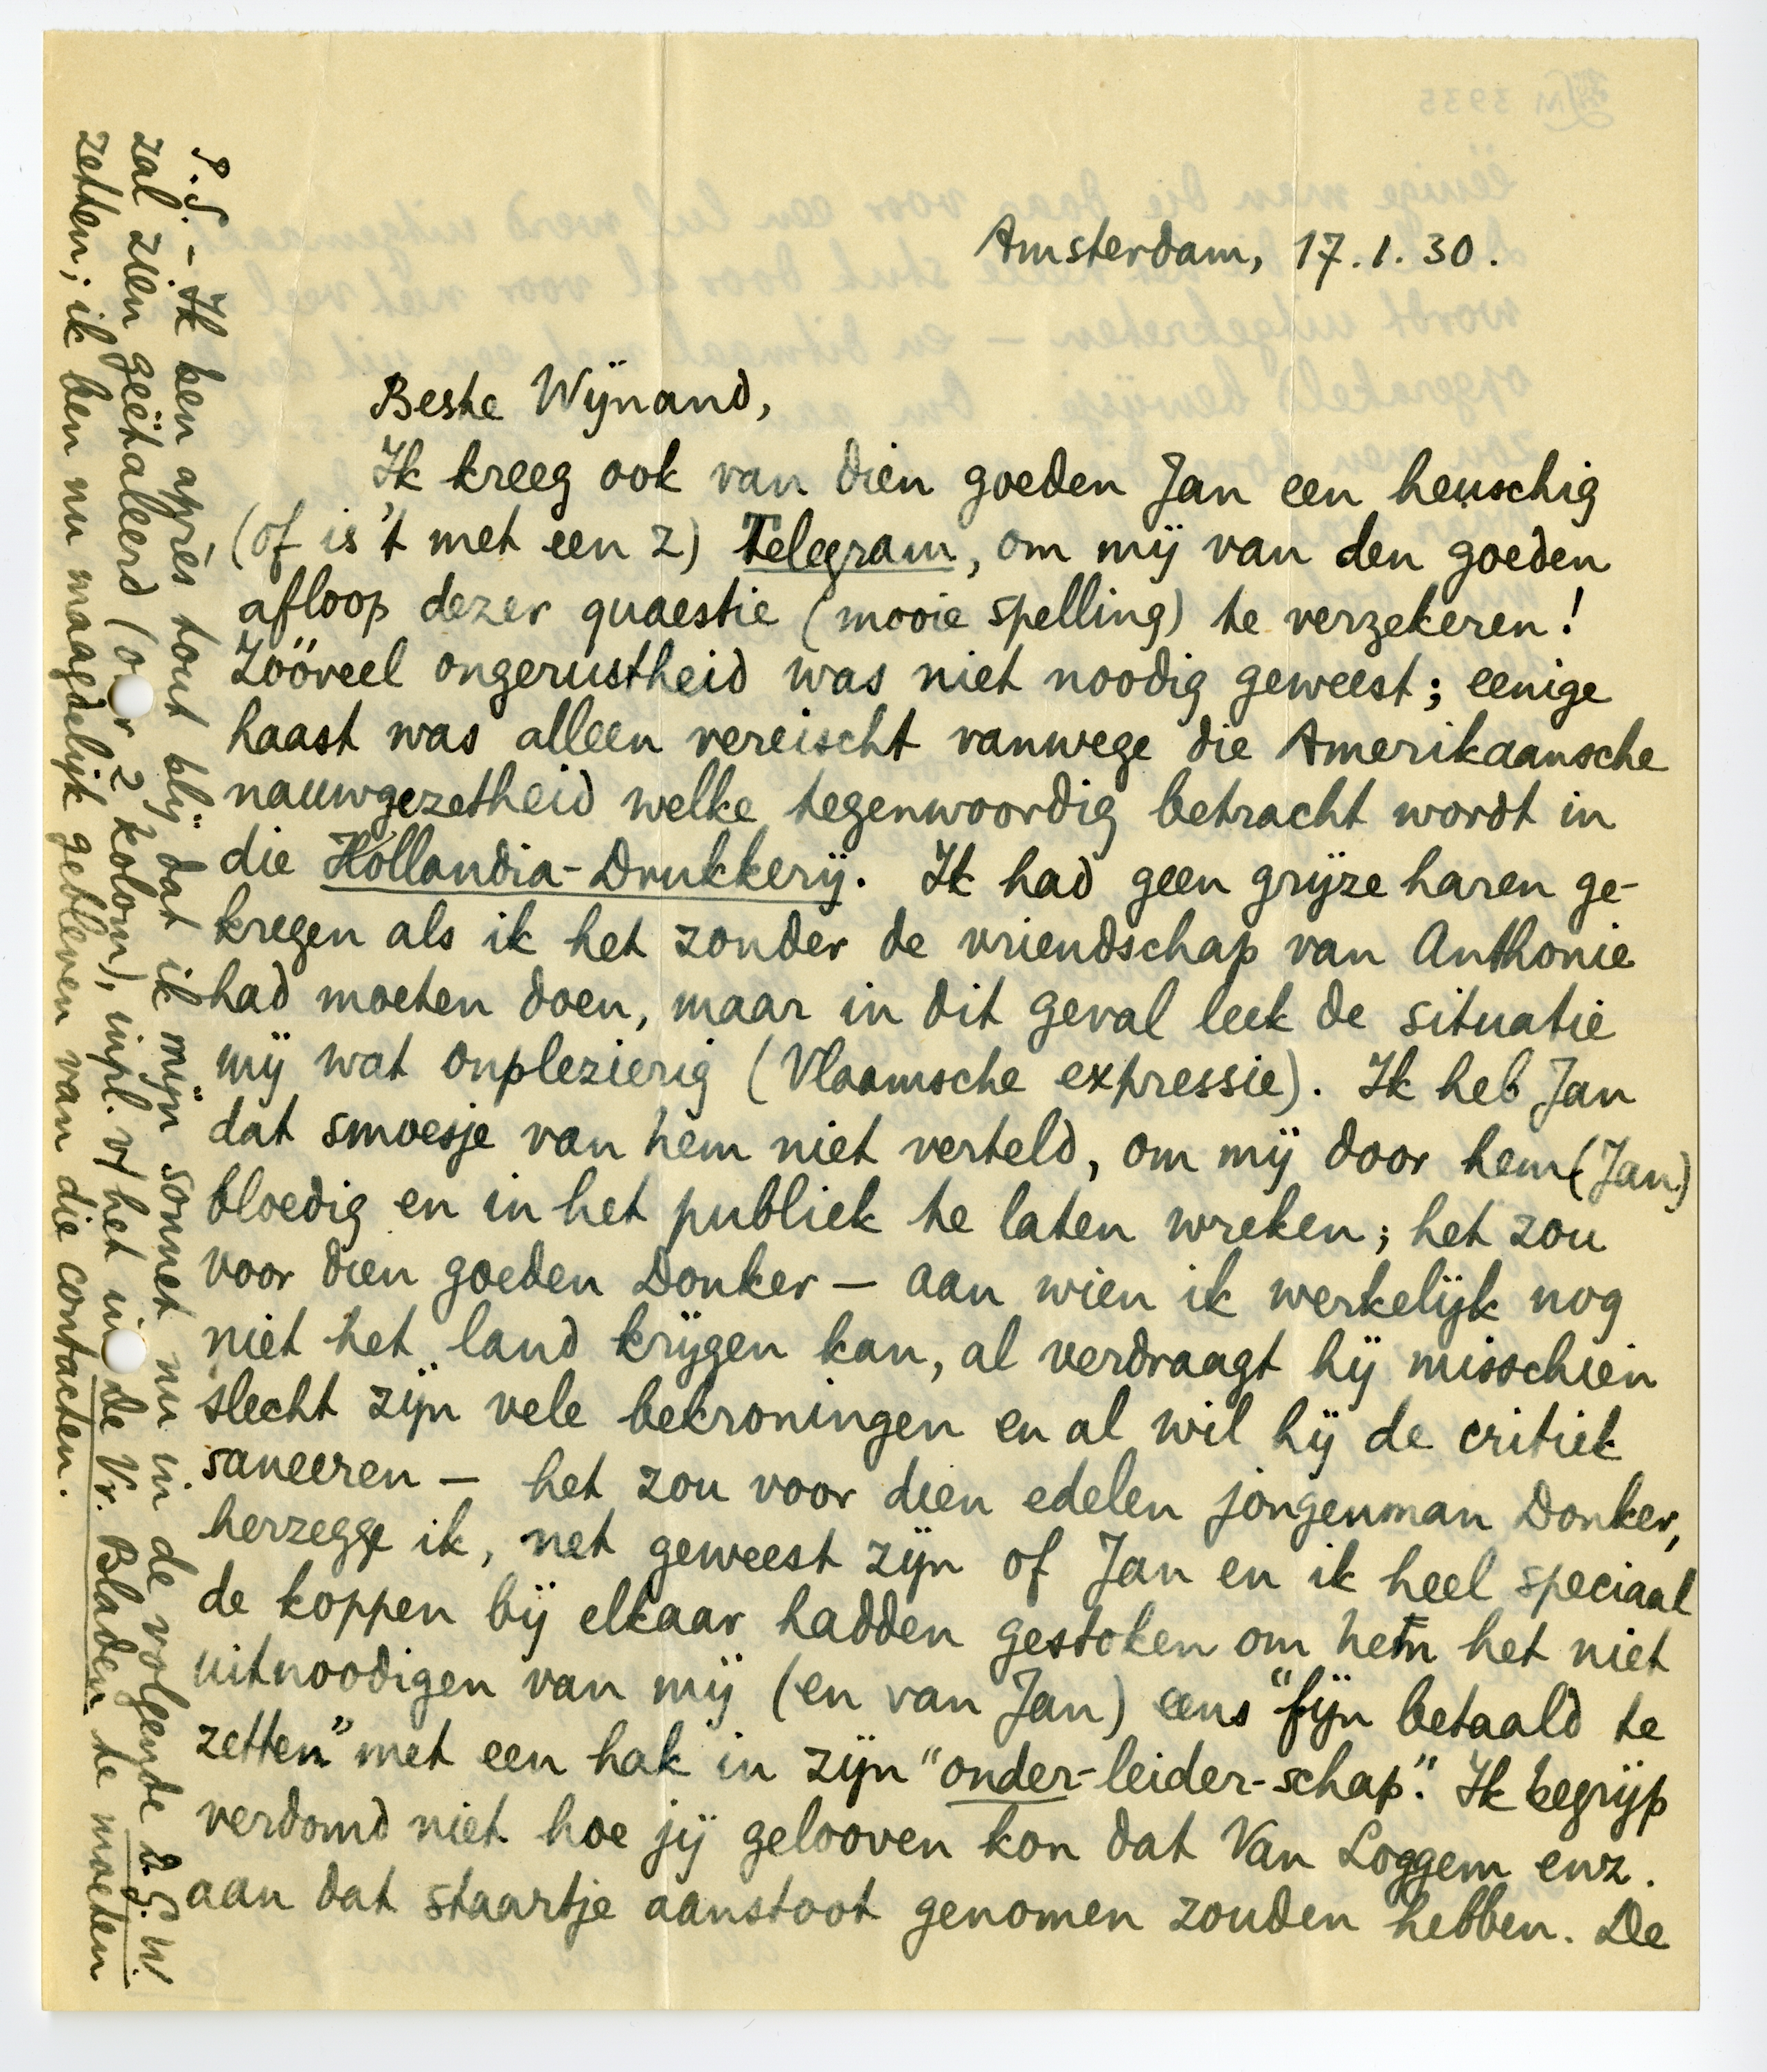 Amsterdam, 17.1.30.
Beste Wijnand,
Ik kreeg ook van dien goeden Jan een heuschig
(of is 't met een z) Telegram, om mij van den goeden
afloop dezer quaestie (mooie spelling) te verzekeren!
Zóóveel ongerustheid was niet noodig geweest; eenige
haast was alleen vereischt vanwege die Amerikaansche
nauwgezetheid welke tegenwoordig betracht wordt in
die Hollandia-Drukkerij. Ik had geen grijze haren ge-
kregen als ik het zonder de vriendschap van Anthonie
had moeten doen, maar in dit geval leek de situatie
mij wat onplezierig (Vlaamsche expressie). Ik heb Jan
dat smoesje van hem niet verteld, om mij door hem (Jan)
bloedig en in het publiek te laten wreken; het zou
voor dien goeden Donker — aan wien ik werkelijk nog
niet het land krijgen kan, al verdraagt hij misschien
slecht zijn vele bekroningen en al wil hij de critiek
saneeren — het zou voor dien edelen jongenman Donker,
herzegge ik, net geweest zijn of Jan en ik heel speciaal
de koppen bij elkaar hadden gestoken om hem het niet
uitnoodigen van mij (en van Jan) eens "fijn betaald te
zetten" met een hak in zijn "onder-leider-schap". Ik begrijp
verdomd niet hoe jij gelooven kon dat Van Loggem enz.
aan dat staartje aanstoot genomen zouden hebben. De
P.S. - Ik ben après tout blij dat ik mijn sonnet nu in de volgende D.G.W.
zal zien geëtaleerd (over 2 kolom), inpl. v/ het in De Vr. Bladen te moeten
zetten; ik ben nu maagdelijk gebleven van die contacten.